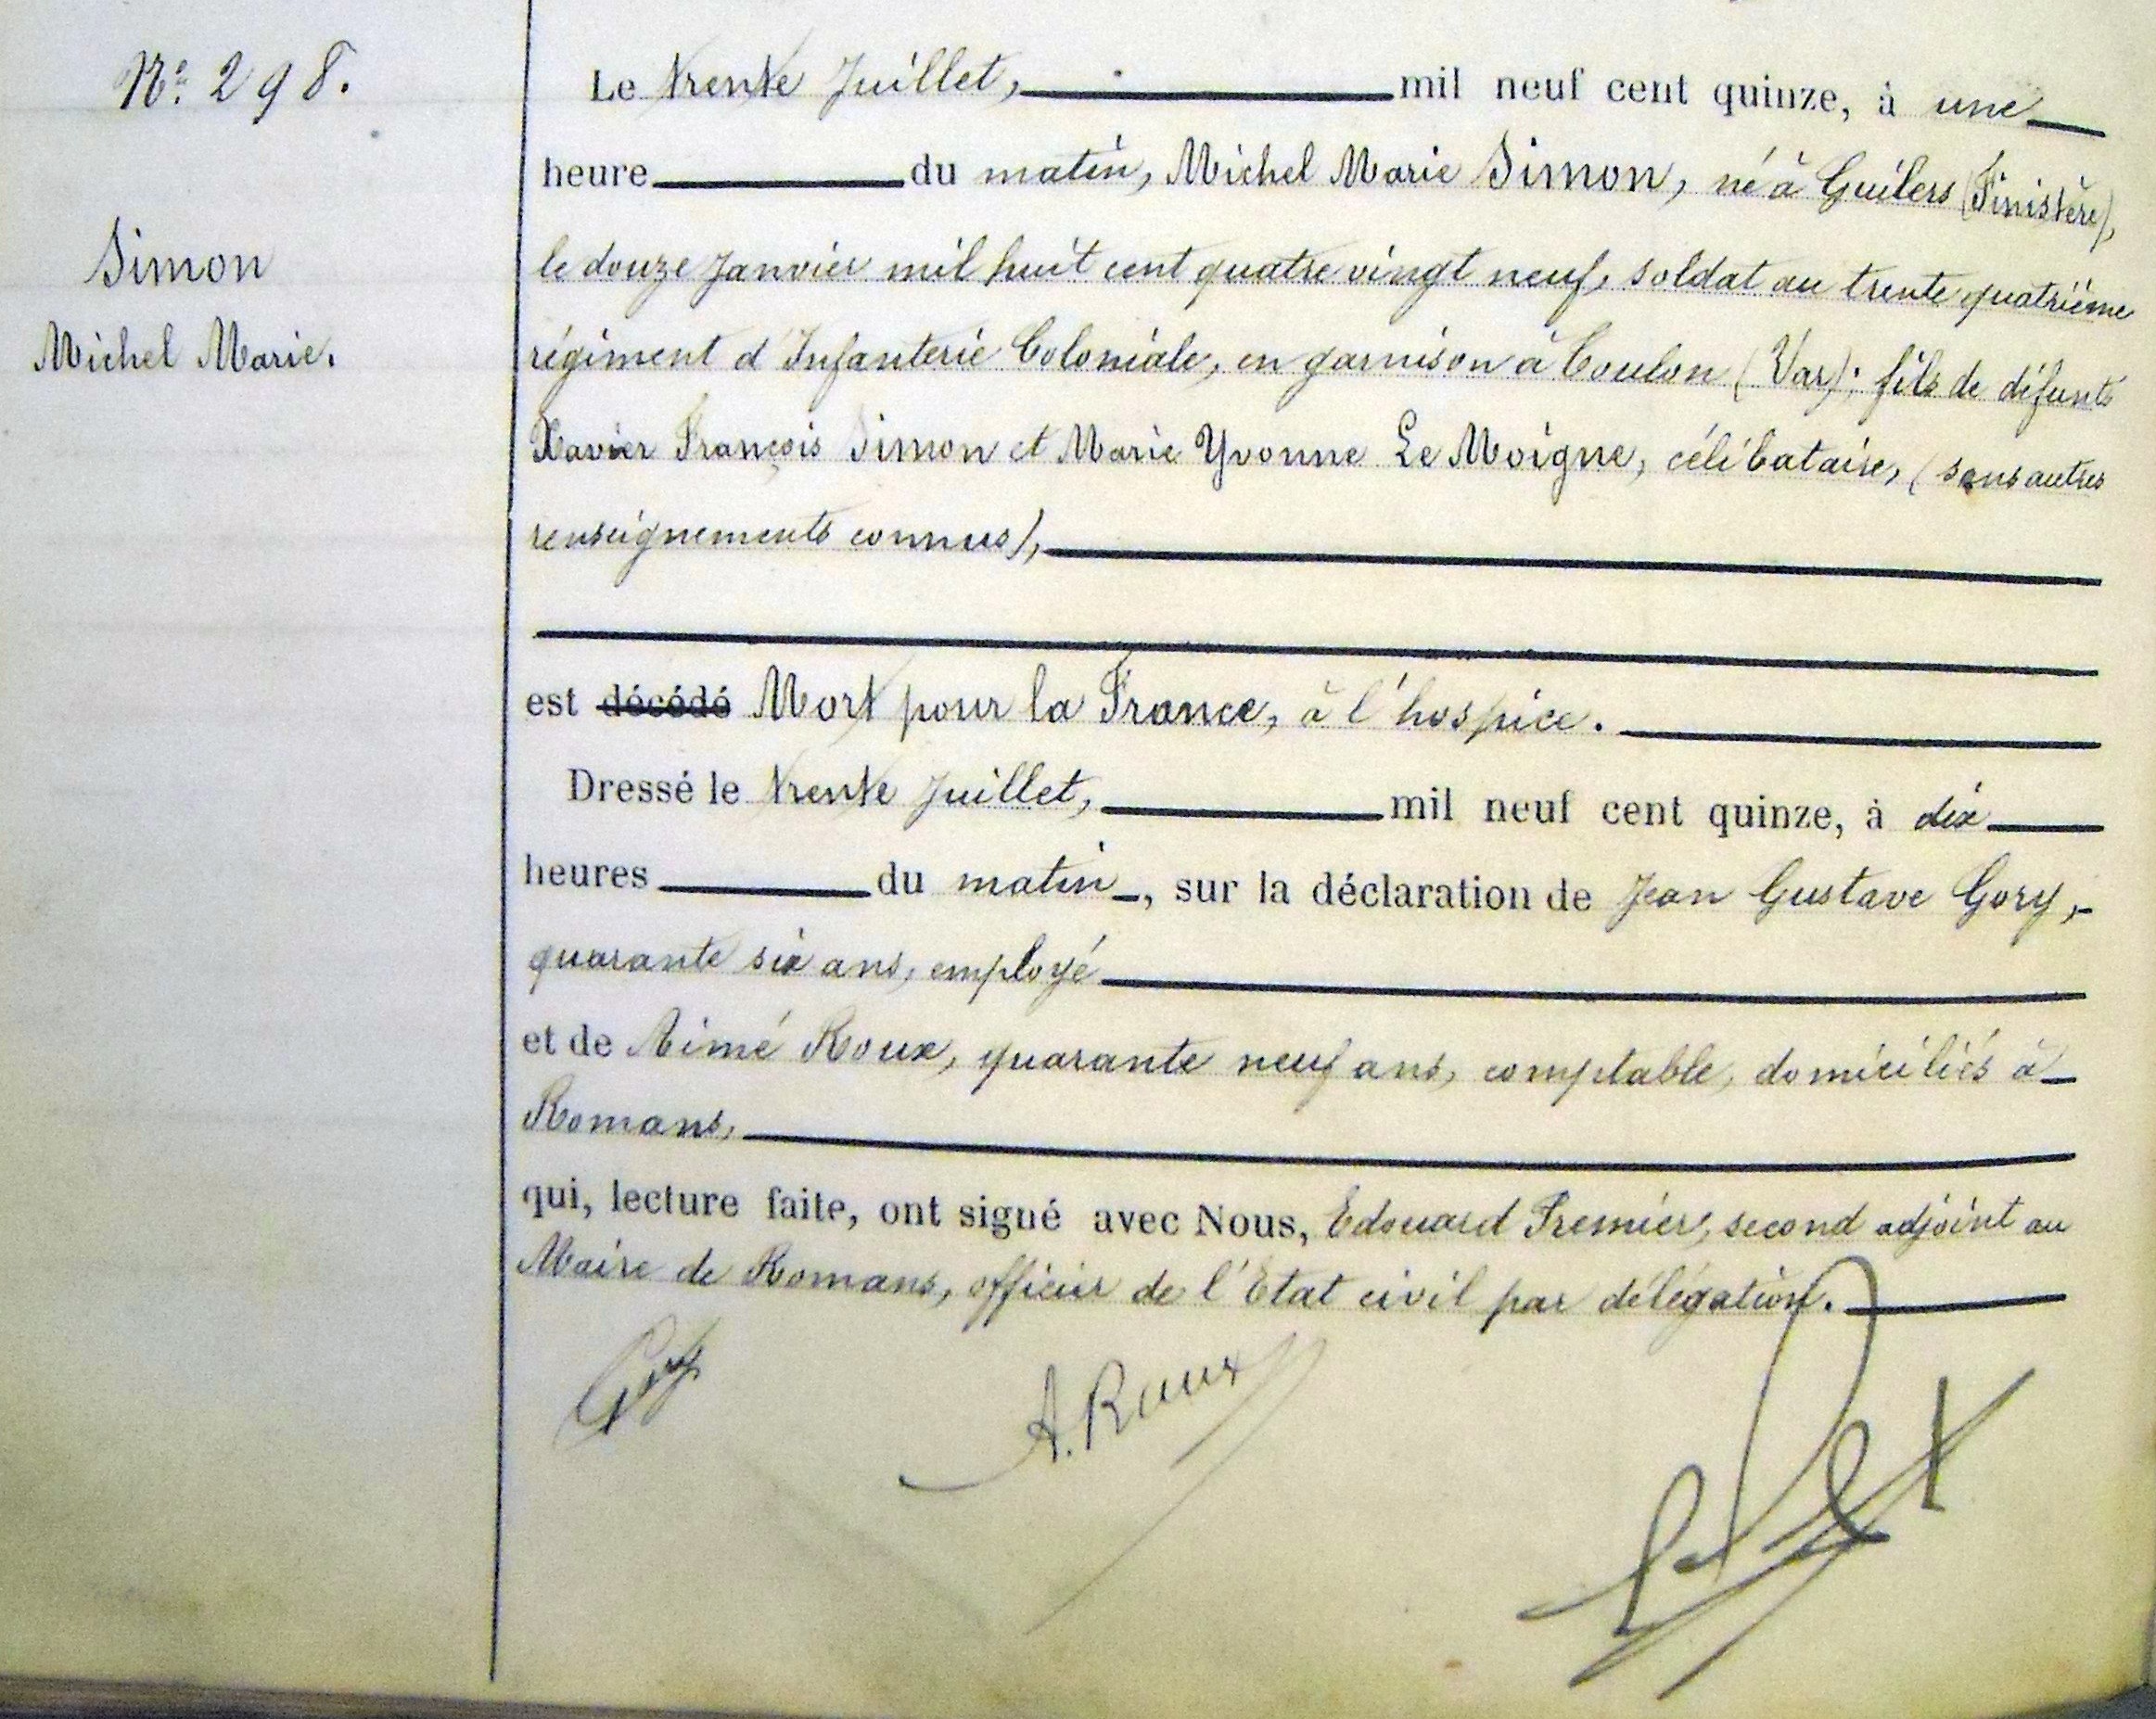 N° 298.
Simon
Michel Marie.
Le trente Juillet, mil neuf cent quinze, à une
heure du matin, Michel Marie Simon, né à Guilers (Finistère),
le douze Janvier mil huit cent quatre vingt neuf, soldat au trente quatrième
régiment d'Infanterie Coloniale, en garnison à Toulon (Var); fils de défunts
Xavier François Simon et Marie Yvonne Le Moigne, célibataire, (sans autres
renseignements connus),
est décédé Mort pour la France, à l'hospice.
Dressé le trente Juillet, mil neuf cent quinze, à dix
heures du matin, sur la déclaration de Jean Gustave Gory,
quarante six ans, employé
et de Aimé Roux, quarante neuf ans, comptable, domiciliés à
Romans,
qui, lecture faite, ont signé avec Nous, Edouard Premier, second adjoint au
Maire de Romans, officier de l'Etat civil par délégation.
Gory
A. Roux